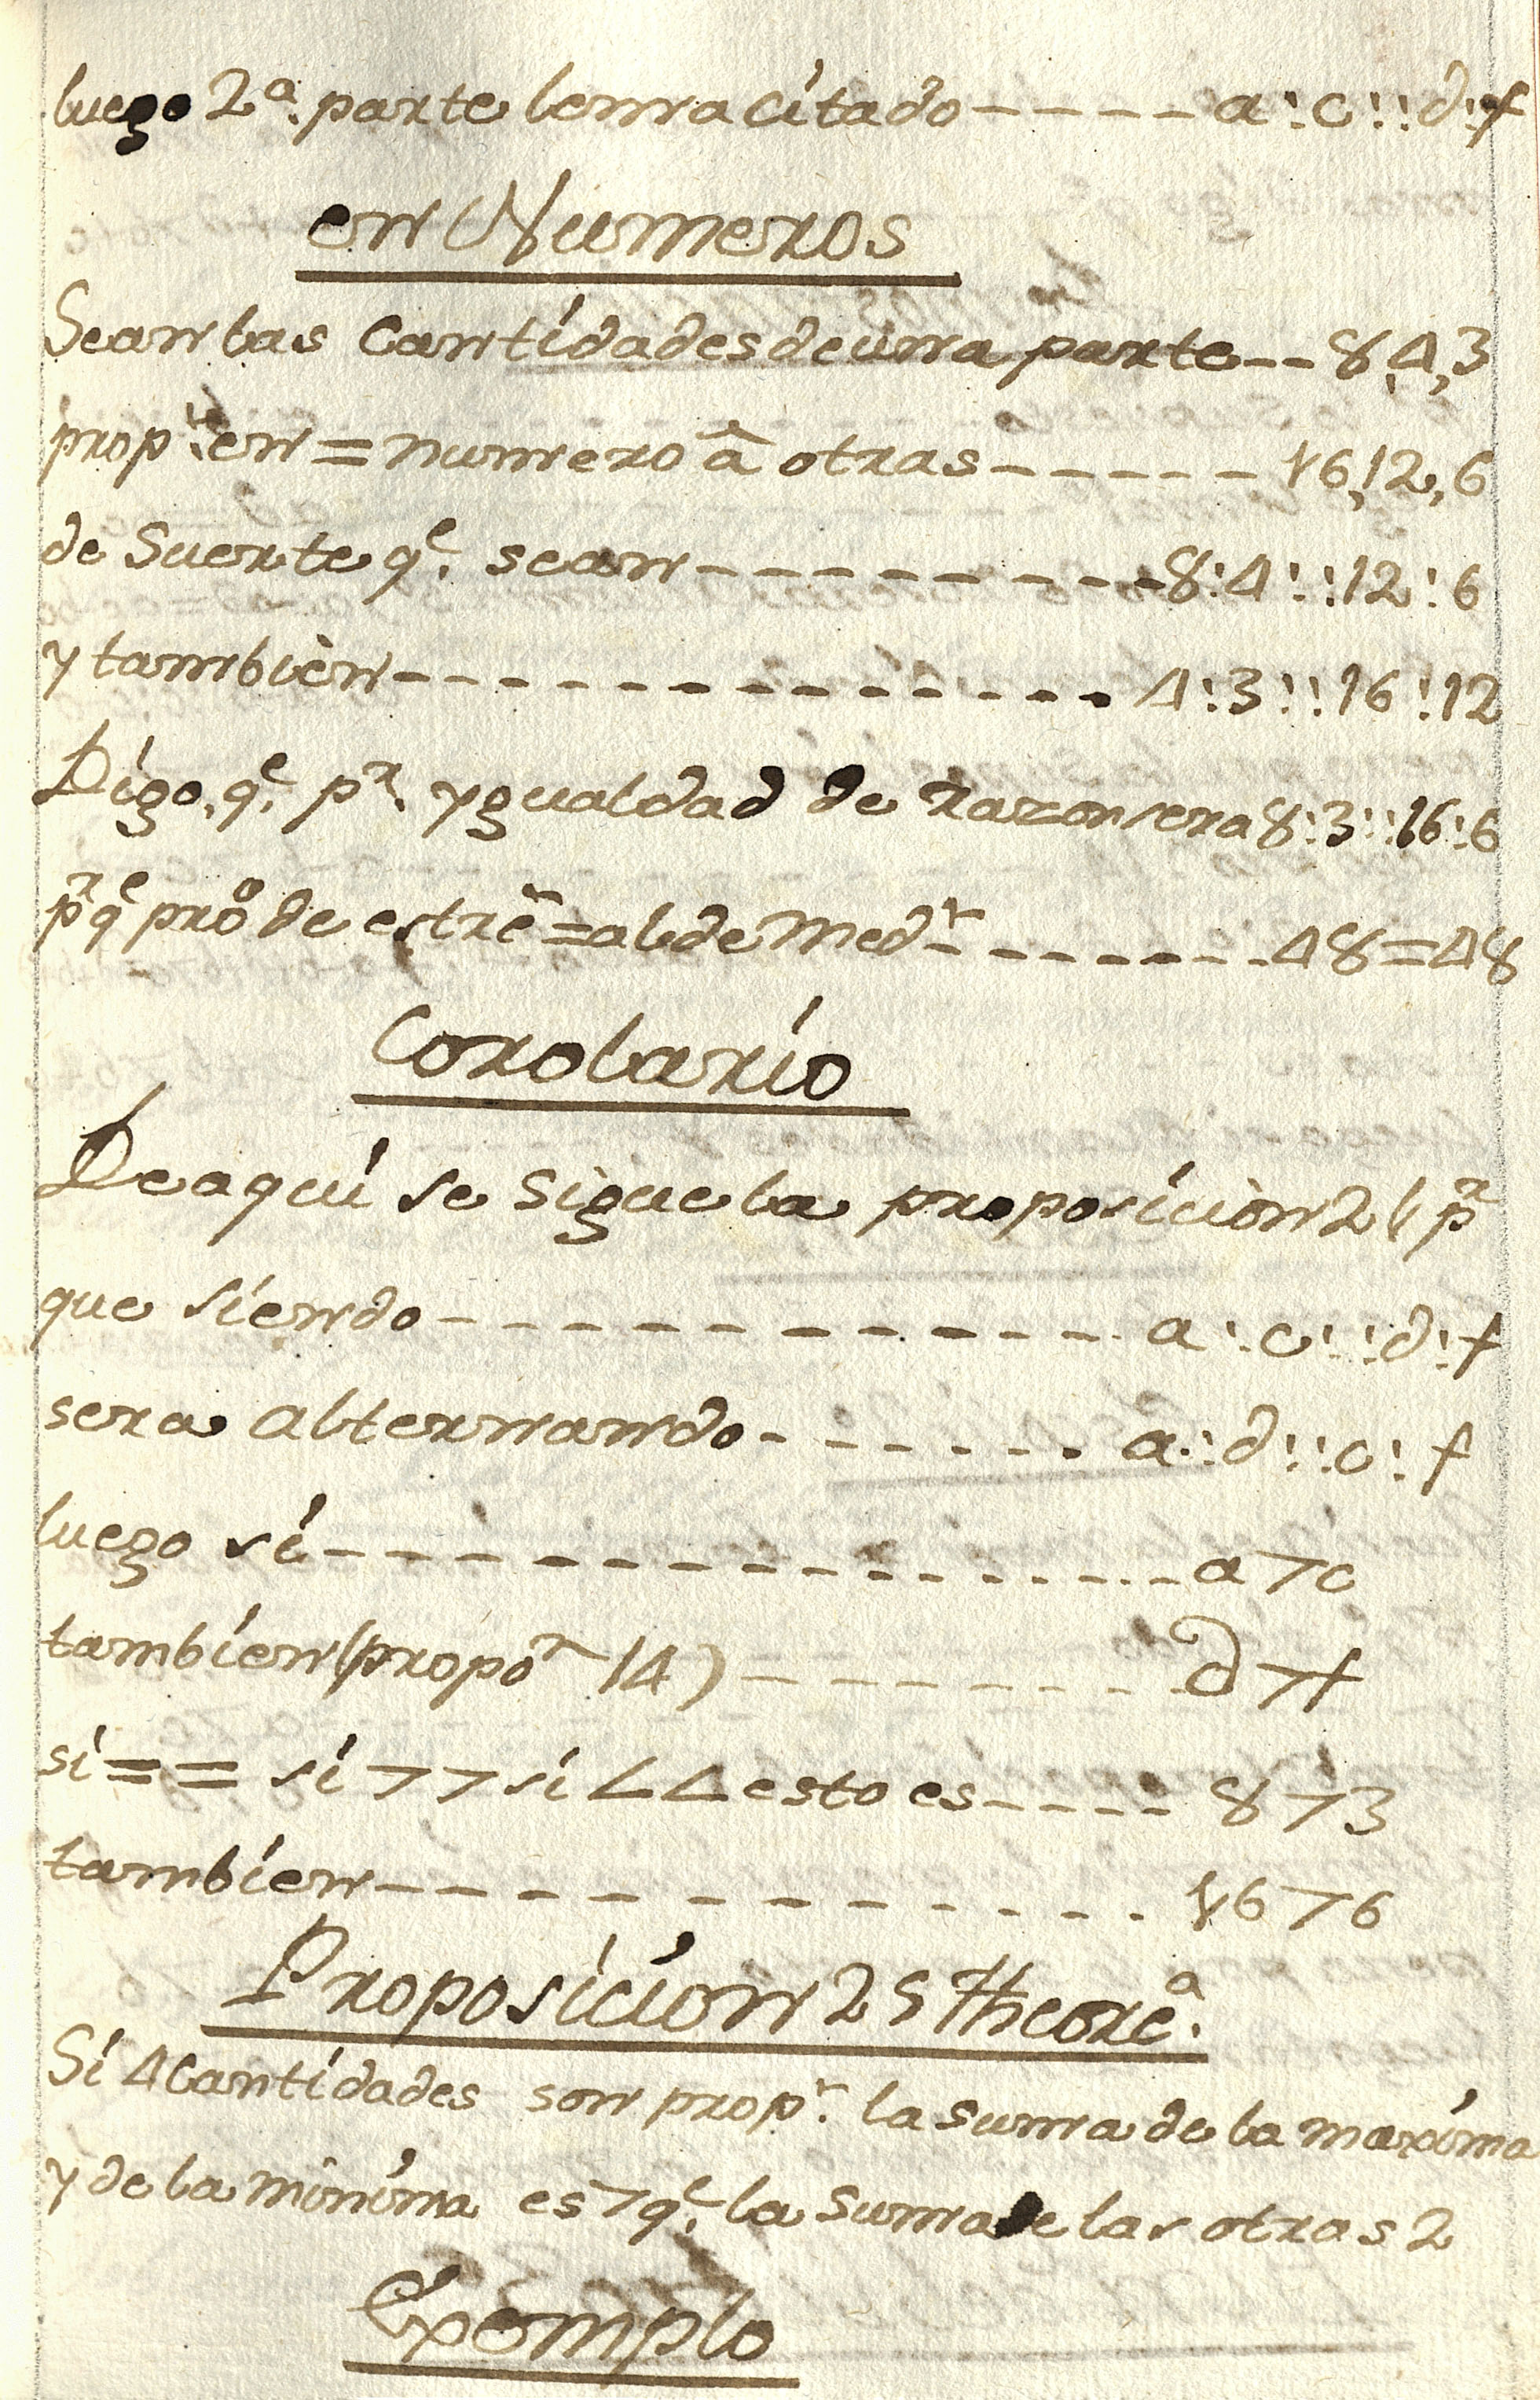 luego 2ª. parte lema citado ----- a:c::d:f
en Numeros
Sean las Cantidades de una parte -- 8,4,3
propˢ. en = numero â otras ------ 16,12,6
de Suerte qᵉ. sean --------- 8:4::12:6
y tambièn --------------- 4:3::16:12
Digo, qᵉ. pʳ. ygualdad de razon sera 8:3::16:6
pʳ qᵉ proᵒ de estrē = al de Medˢ ------- 48=48
Corolario
De aqui se sigue la proposiciòn 21 pʳ
que siendo ------------ a:c::d:f
sera alternando ------- a:d::c:f
luego si --------------- a>c
tambien (propoⁿ 14) -------- d>f
si == si >> si << esto es ---- 8>3
tambien ------------ 16>6
Proposicion 25 Theoreᵃ.
Si 4 Cantidades son propˢ. la suma de la maxima
y de la minima es > qᵉ. la suma de las otras 2
Exemplo